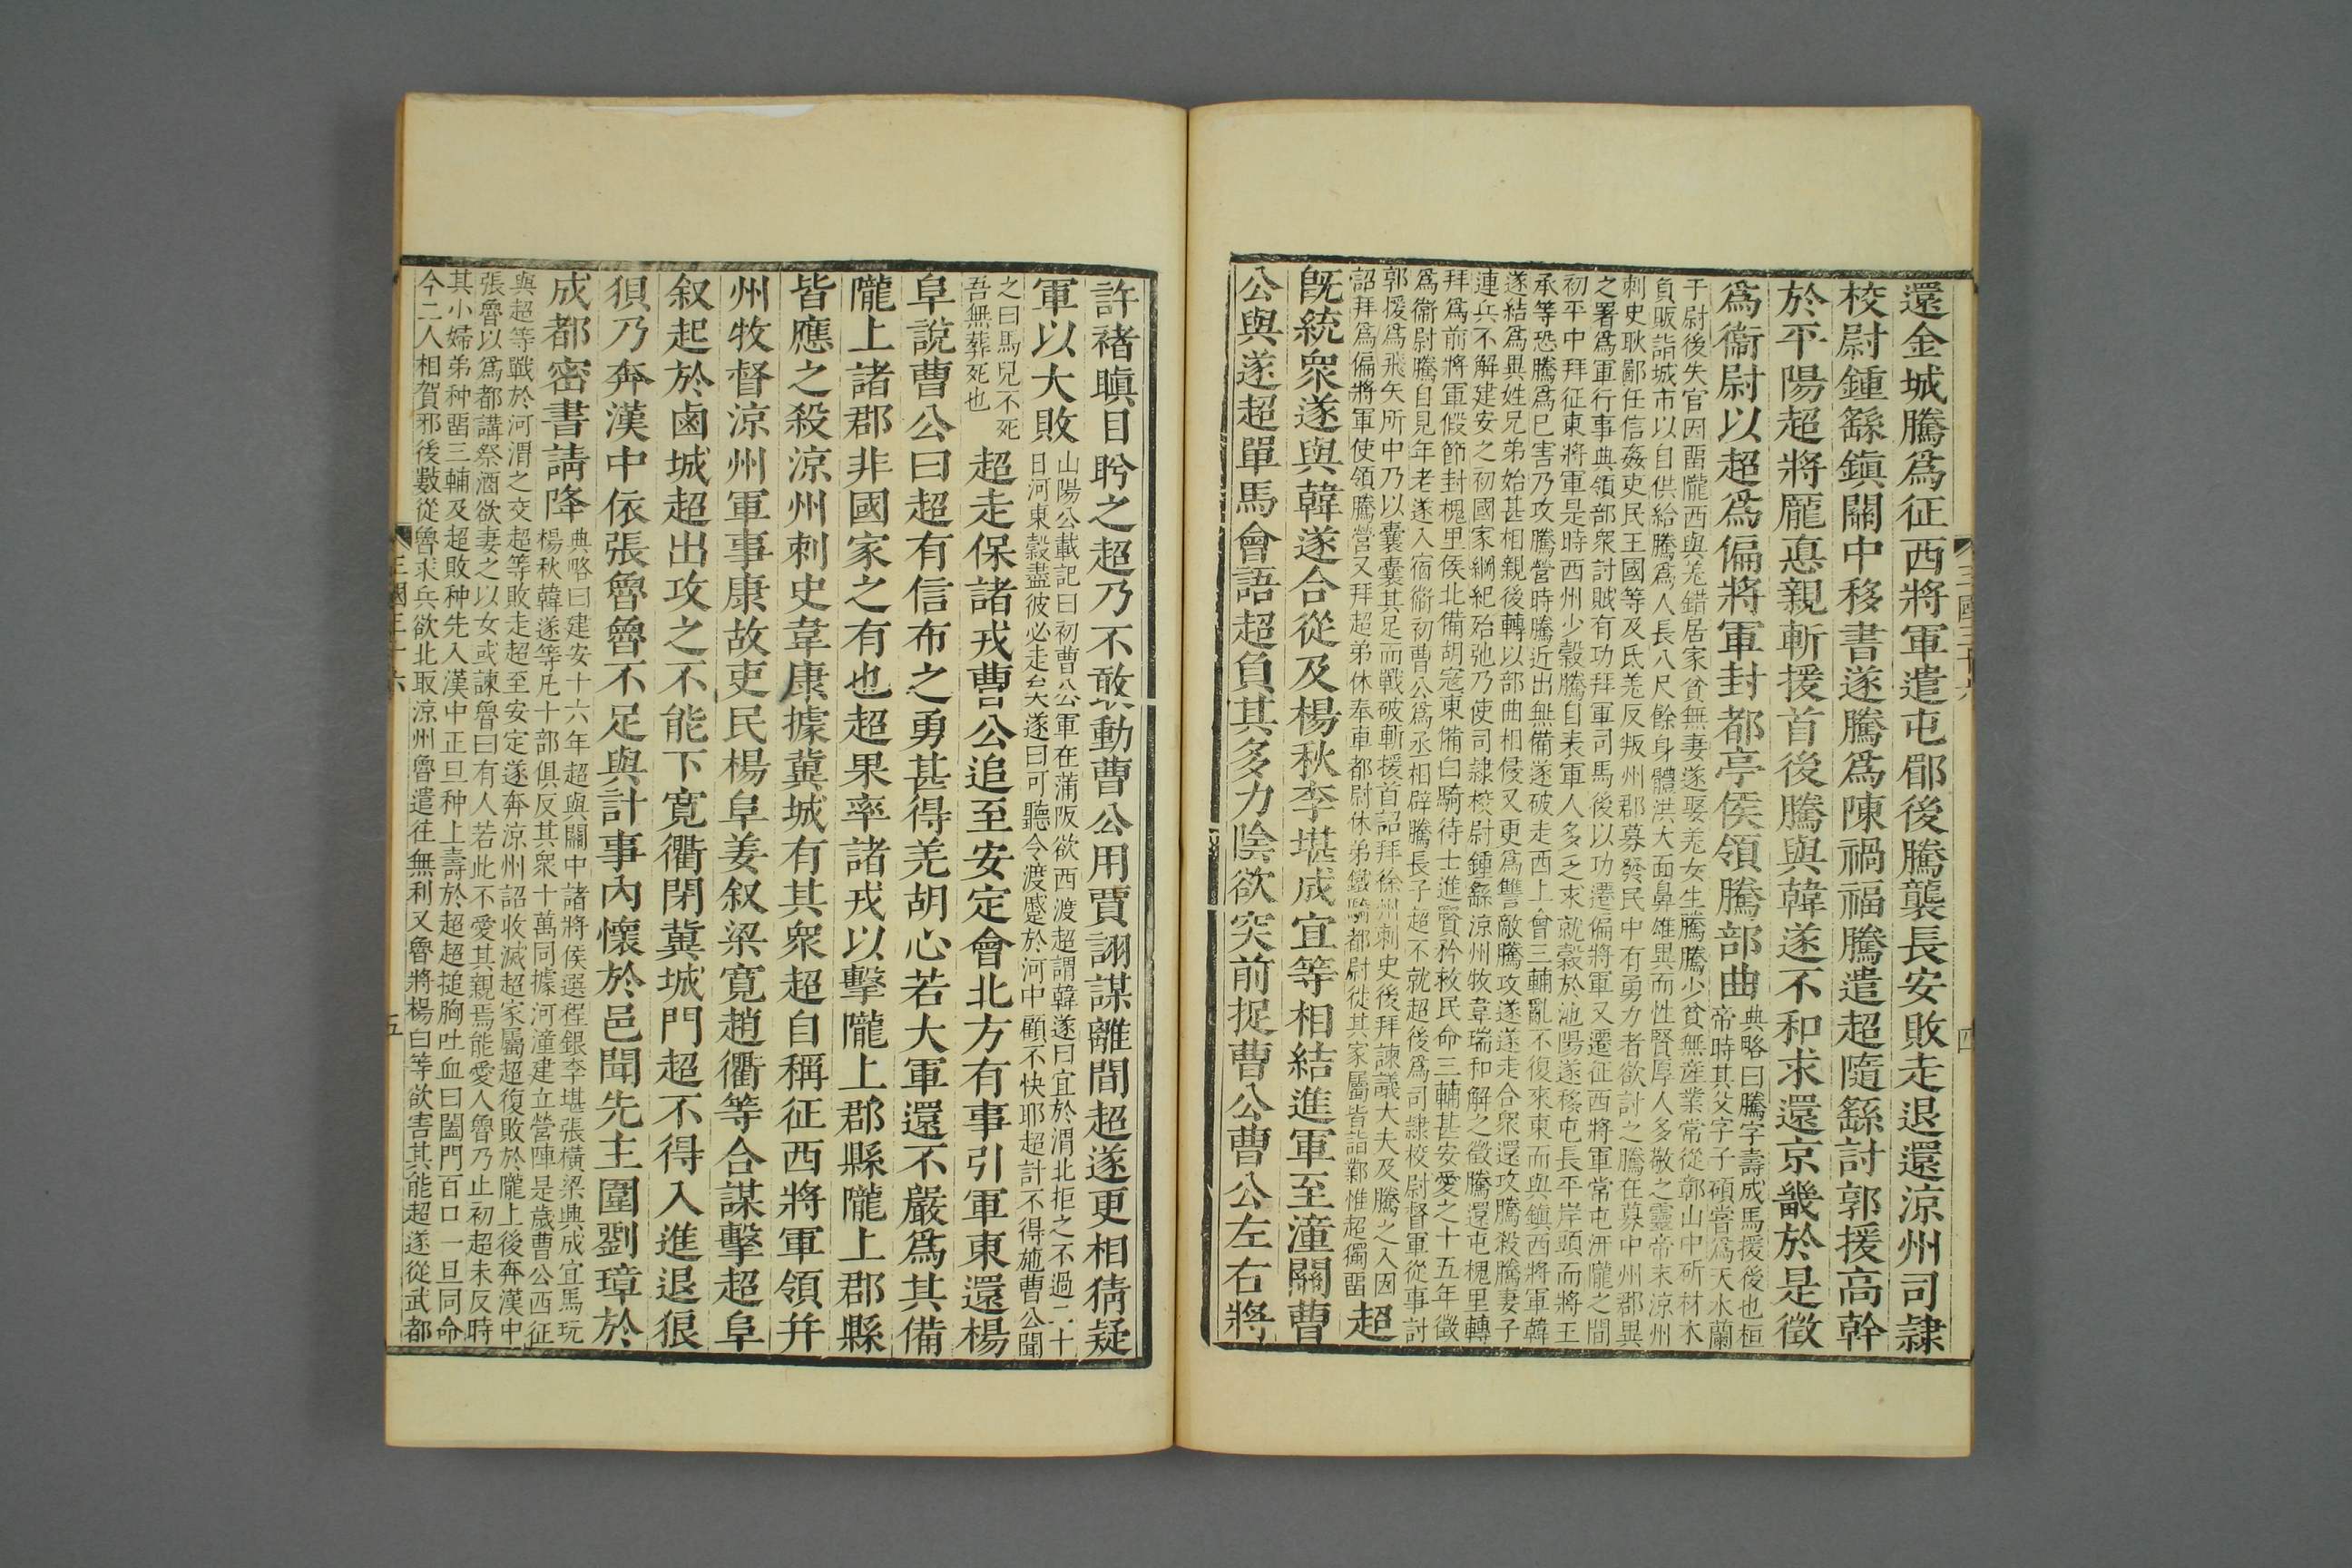 還金城騰爲征西將軍遣屯郿後騰襲長安敗走退還涼州司隸
校尉鍾繇鎮關中移書遂騰爲陳禍福騰遣超隨繇討郭援高幹
於平陽超將龐悳親斬援首後騰與韓遂不和求還京畿於是徵
爲衞尉以超爲偏將軍封都亭侯領騰部曲
典略曰騰字壽成馬援後也桓
帝時其父字子碩嘗爲天水蘭
干尉後失官因畱隴西與羌錯居家貧無妻遂娶羌女生騰騰少貧無產業常從彰山中斫材木
負販詣城市以自供給騰爲人長八尺餘身體洪大面鼻雄異而性賢厚人多敬之靈帝末涼州
刺史耿鄙任信姦吏民王國等及氐羌反叛州郡募發民中有勇力者欲討之騰在募中州郡異
之署爲軍行事典領部衆討賊有功拜軍司馬後以功遷偏將軍又遷征西將軍常屯汧隴之間
初平中拜征東將軍是時西州少穀騰自表軍人多乏求就穀於池陽遂移屯長平岸頭而將王
承等恐騰爲己害乃攻騰營時騰近出無備遂破走西上會三輔亂不復來東而與鎮西將軍韓
遂結爲異姓兄弟始甚相親後轉以部曲相侵又更爲讐敵騰攻遂遂走合衆還攻騰殺騰妻子
連兵不解建安之初國家綱紀殆弛乃使司隸校尉鍾繇涼州牧韋瑞和解之徵騰還屯槐里轉
拜爲前將軍假節封槐里侯北備胡寇東備白騎待士進賢矜救民命三輔甚安愛之十五年徵
爲衞尉騰自見年老遂入宿衞初曹公爲丞相辟騰長子超不就超後爲司隸校尉督軍從事討
郭援爲飛矢所中乃以囊囊其足而戰破斬援首詔拜徐州刺史後拜諫議大夫及騰之入因
詔拜爲偏將軍使領騰營又拜超弟休奉車都尉休弟鐵騎都尉徙其家屬皆詣鄴惟超獨畱
超
旣統衆遂與韓遂合從及楊秋李堪成宜等相結進軍至潼關曹
公與遂超單馬會語超負其多力陰欲突前捉曹公曹公左右將
三國三十六
四
許褚瞋目盻之超乃不敢動曹公用賈詡謀離間超遂更相猜疑
軍以大敗
山陽公載記曰初曹公軍在蒲阪欲西渡超謂韓遂曰宜於渭北拒之不過二十
日河東穀盡彼必走矣遂曰可聽令渡蹙於河中顧不快耶超計不得施曹公聞
之曰馬兒不死
吾無葬死也
超走保諸戎曹公追至安定會北方有事引軍東還楊
阜說曹公曰超有信布之勇甚得羌胡心若大軍還不嚴爲其備
隴上諸郡非國家之有也超果率諸戎以擊隴上郡縣隴上郡縣
皆應之殺涼州刺史韋康據冀城有其衆超自稱征西將軍領幷
州牧督涼州軍事康故吏民楊阜姜叙梁寬趙衢等合謀擊超阜
叙起於鹵城超出攻之不能下寬衢閉冀城門超不得入進退狼
狽乃奔漢中依張魯魯不足與計事內懷於邑聞先主圍劉璋於
成都密書請降
典略曰建安十六年超與關中諸將侯選程銀李堪張橫梁興成宜馬玩
楊秋韓遂等凡十部俱反其衆十萬同據河潼建立營陣是歲曹公西征
與超等戰於河渭之交超等敗走超至安定遂奔涼州詔收滅超家屬超復敗於隴上後奔漢中
張魯以爲都講祭酒欲妻之以女或諫魯曰有人若此不愛其親焉能愛人魯乃止初超未反時
其小婦弟种畱三輔及超敗种先入漢中正旦种上壽於超超搥胸吐血曰闔門百口一旦同命
今二人相賀邪後數從魯求兵欲北取涼州魯遣往無利又魯將楊白等欲害其能超遂從武都
三國三十六
五